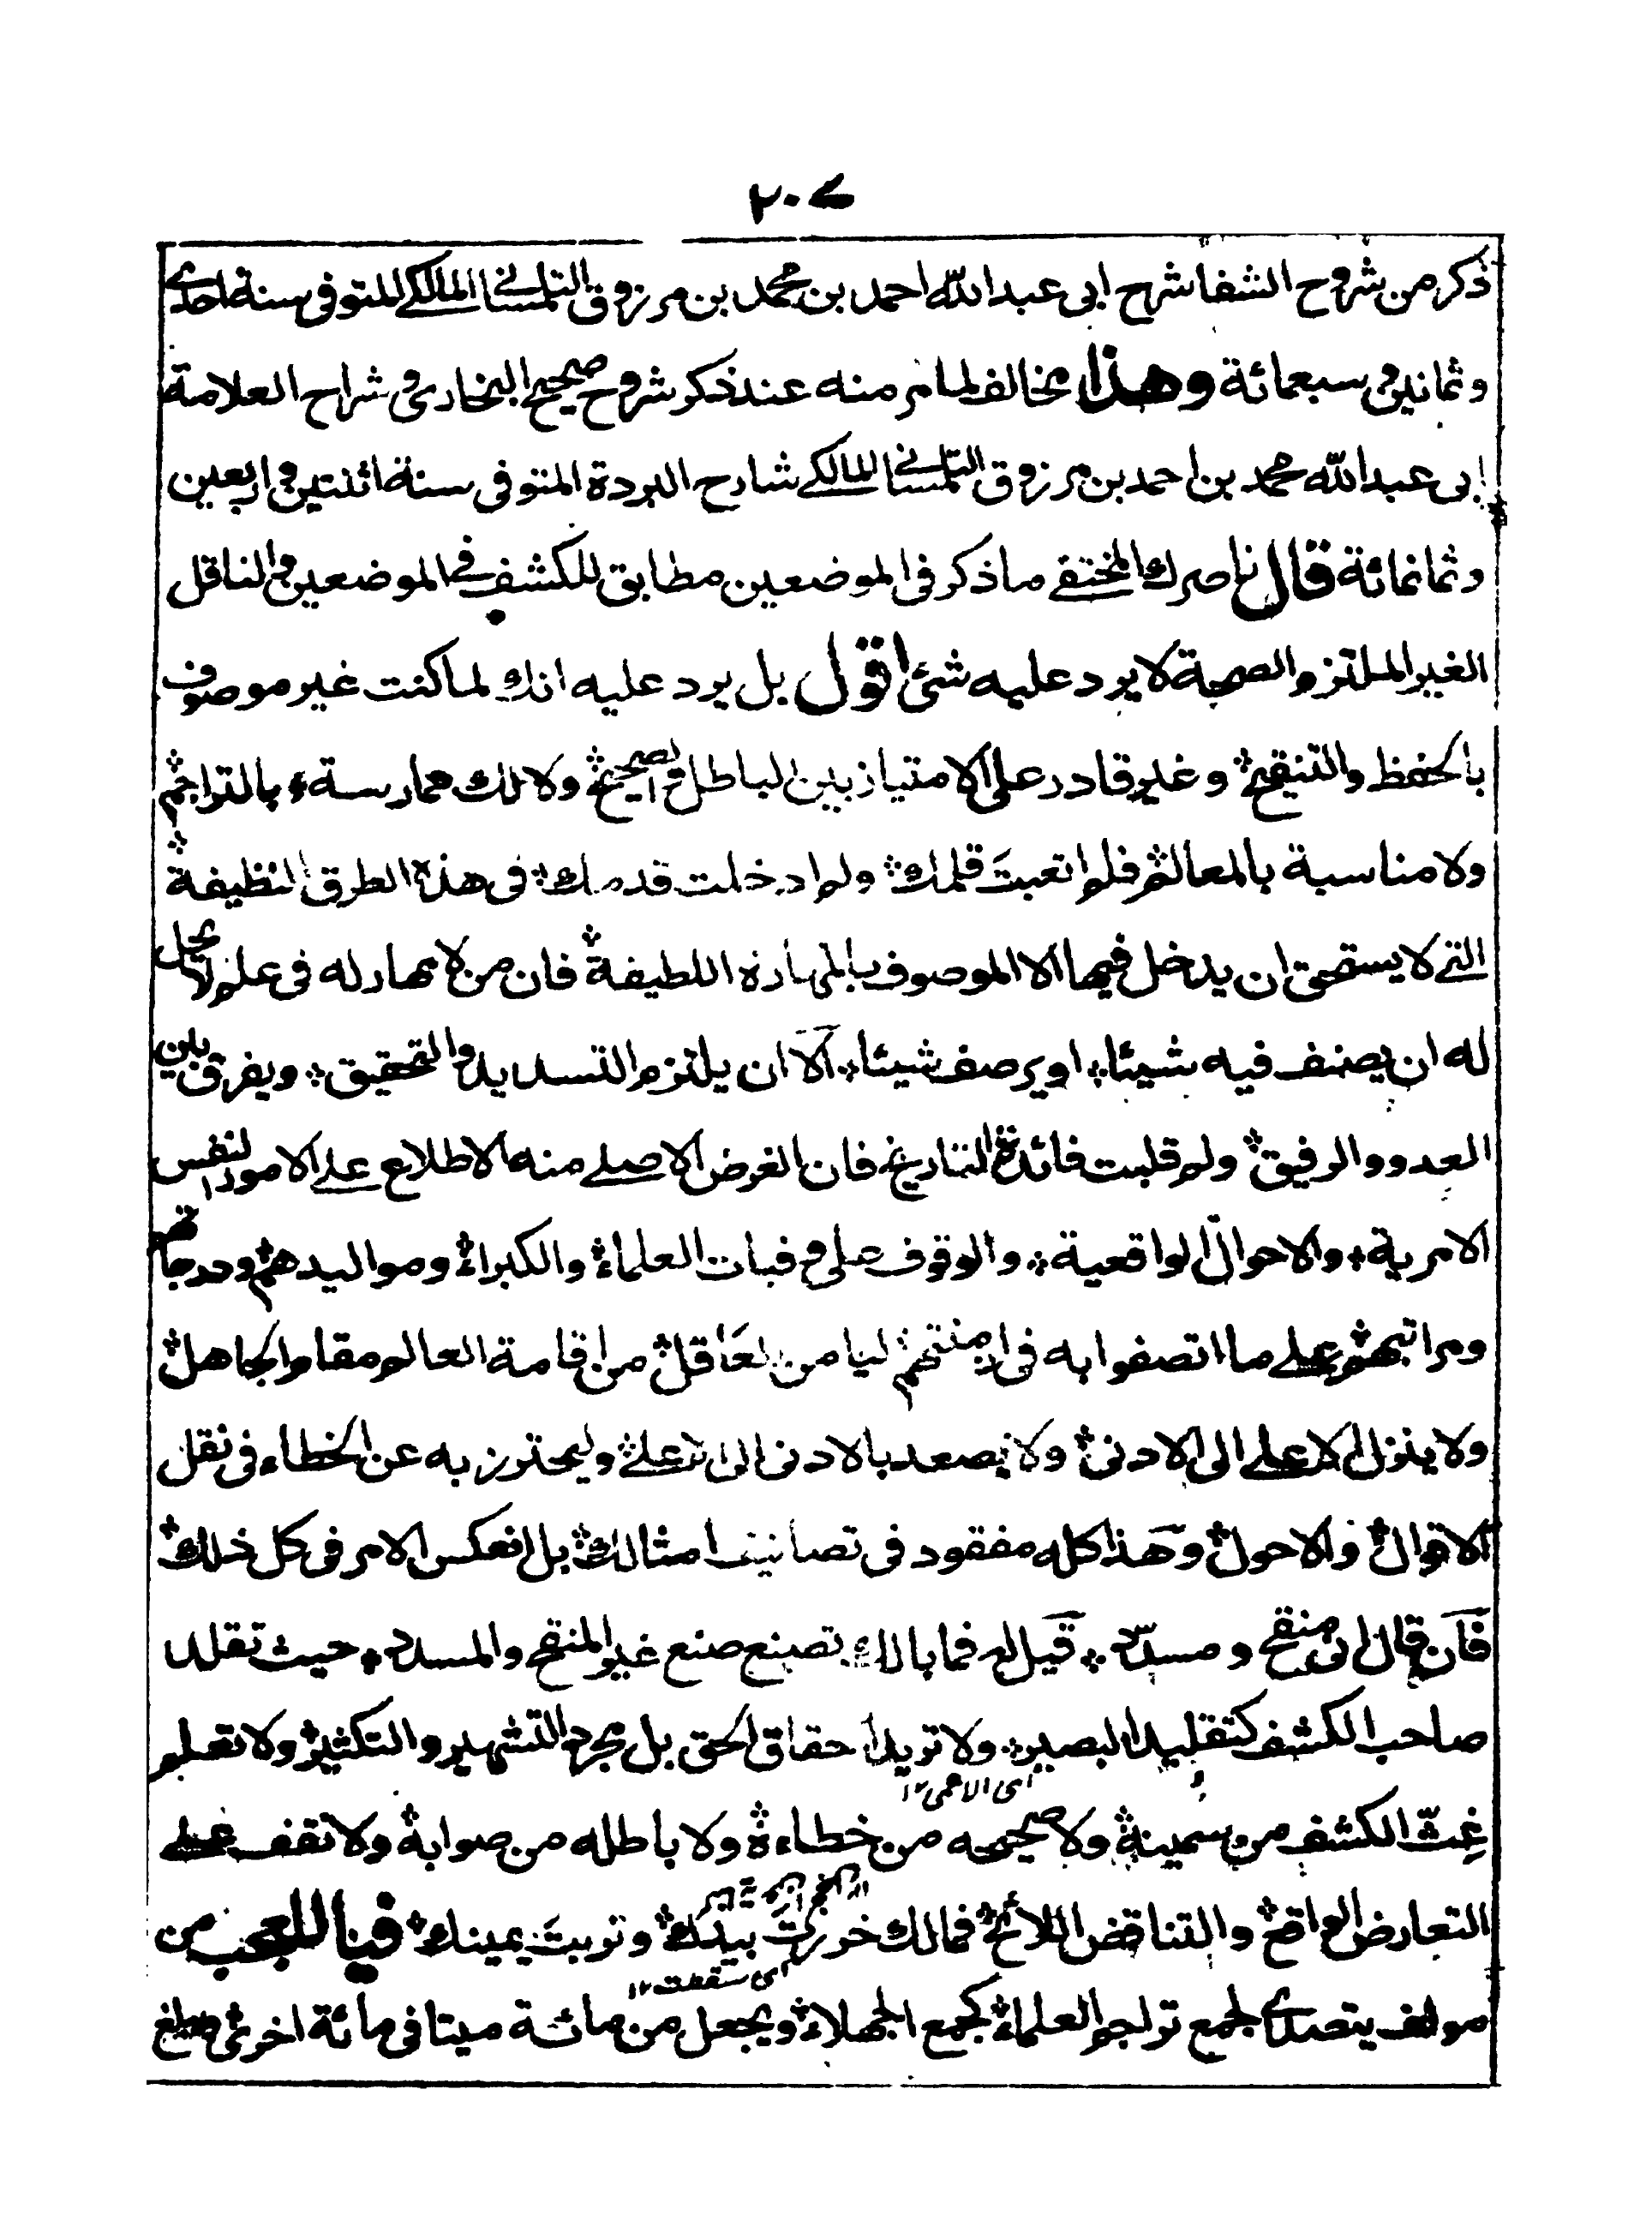 ٢٠٧
ذكر من شروح الشفا شرح ابى عبد الله احمد بن محمد بن مرزوق التلمسانى المالكى المتوفى سنة احدى
وثمانين وسبعمائة وهذا مخالف لما مر منه عند ذكر شروح صحيح البخارى وشراح العلامة
ابى عبد الله محمد بن احمد بن مرزوق التلمسانى المالكى شارح البردة المتوفى سنة اثنتين واربعين
وثمانمائة قال ناصرك المختفى ما ذكر فى الموضعين مطابق للكشف فى الموضعين والناقل
الغير الملتزم الصحة لا يرد عليه شئ اقول بل يرد عليه انك لما كنت غير موصوف
بالحفظ والتنقيح وغير قادر على الامتياز بين الباطل والصحيح ولا لك ممارسة بالتراجم
ولا مناسبة بالمعالم فلم اتعبت قلمك ولم ادخلت قدمك فى هذه الطرق النظيفة
التى لا يستحق ان يدخل فيها الا الموصوف بالمهارة اللطيفة فان من لا مهارة له فى علم لا يحل
له ان يصنف فيه شيئا او يرصف شيئا الا ان يلتزم التسديد والتحقيق ويفرق بين
العدو والرفيق ولم قلبت فائدة التاريخ فان الغرض الاصلى منه الاطلاع على الامور النفس
الامرية والاحوال الواقعية والوقوف على وفيات العلماء والكبراء ومواليدهم ودرجاتهم
ومراتبهم على ما اتصفوا به فى ازمنتهم ليامن العاقل من اقامة العالم مقام الجاهل
ولا ينزل الاعلى الى الادنى ولا يصعد بالادنى الى الاعلى وليحترز به عن الخطاء فى نقل
الاقوال والاحوال وهذا كله مفقود فى تصانيف امثالك بل انعكس الامر فى كل ذلك
فان قال انى منقح ومسدد قيل له فما بالك تصنع صنع غير المنقح والمسدد حيث تقلد
صاحب الكشف كتقليد البصير ولا تريد احقاق الحق بل مجرد التشهير والتكثير ولا تعلم
اى الاعمى ١٢
غث الكشف من سمينه ولا صحيحه من خطاءه ولا باطله من صوابه ولا تقف على
التعارض الواقع والتناقض اللائح فمالك خررت بيدك وتربت يمينك فيا للعجب من
اى سقطت ١٢
مولف يتصدى لجمع تراجم العلماء كجمع الجهلاء ويجعل من مائة ميتا فى مائة اخرى